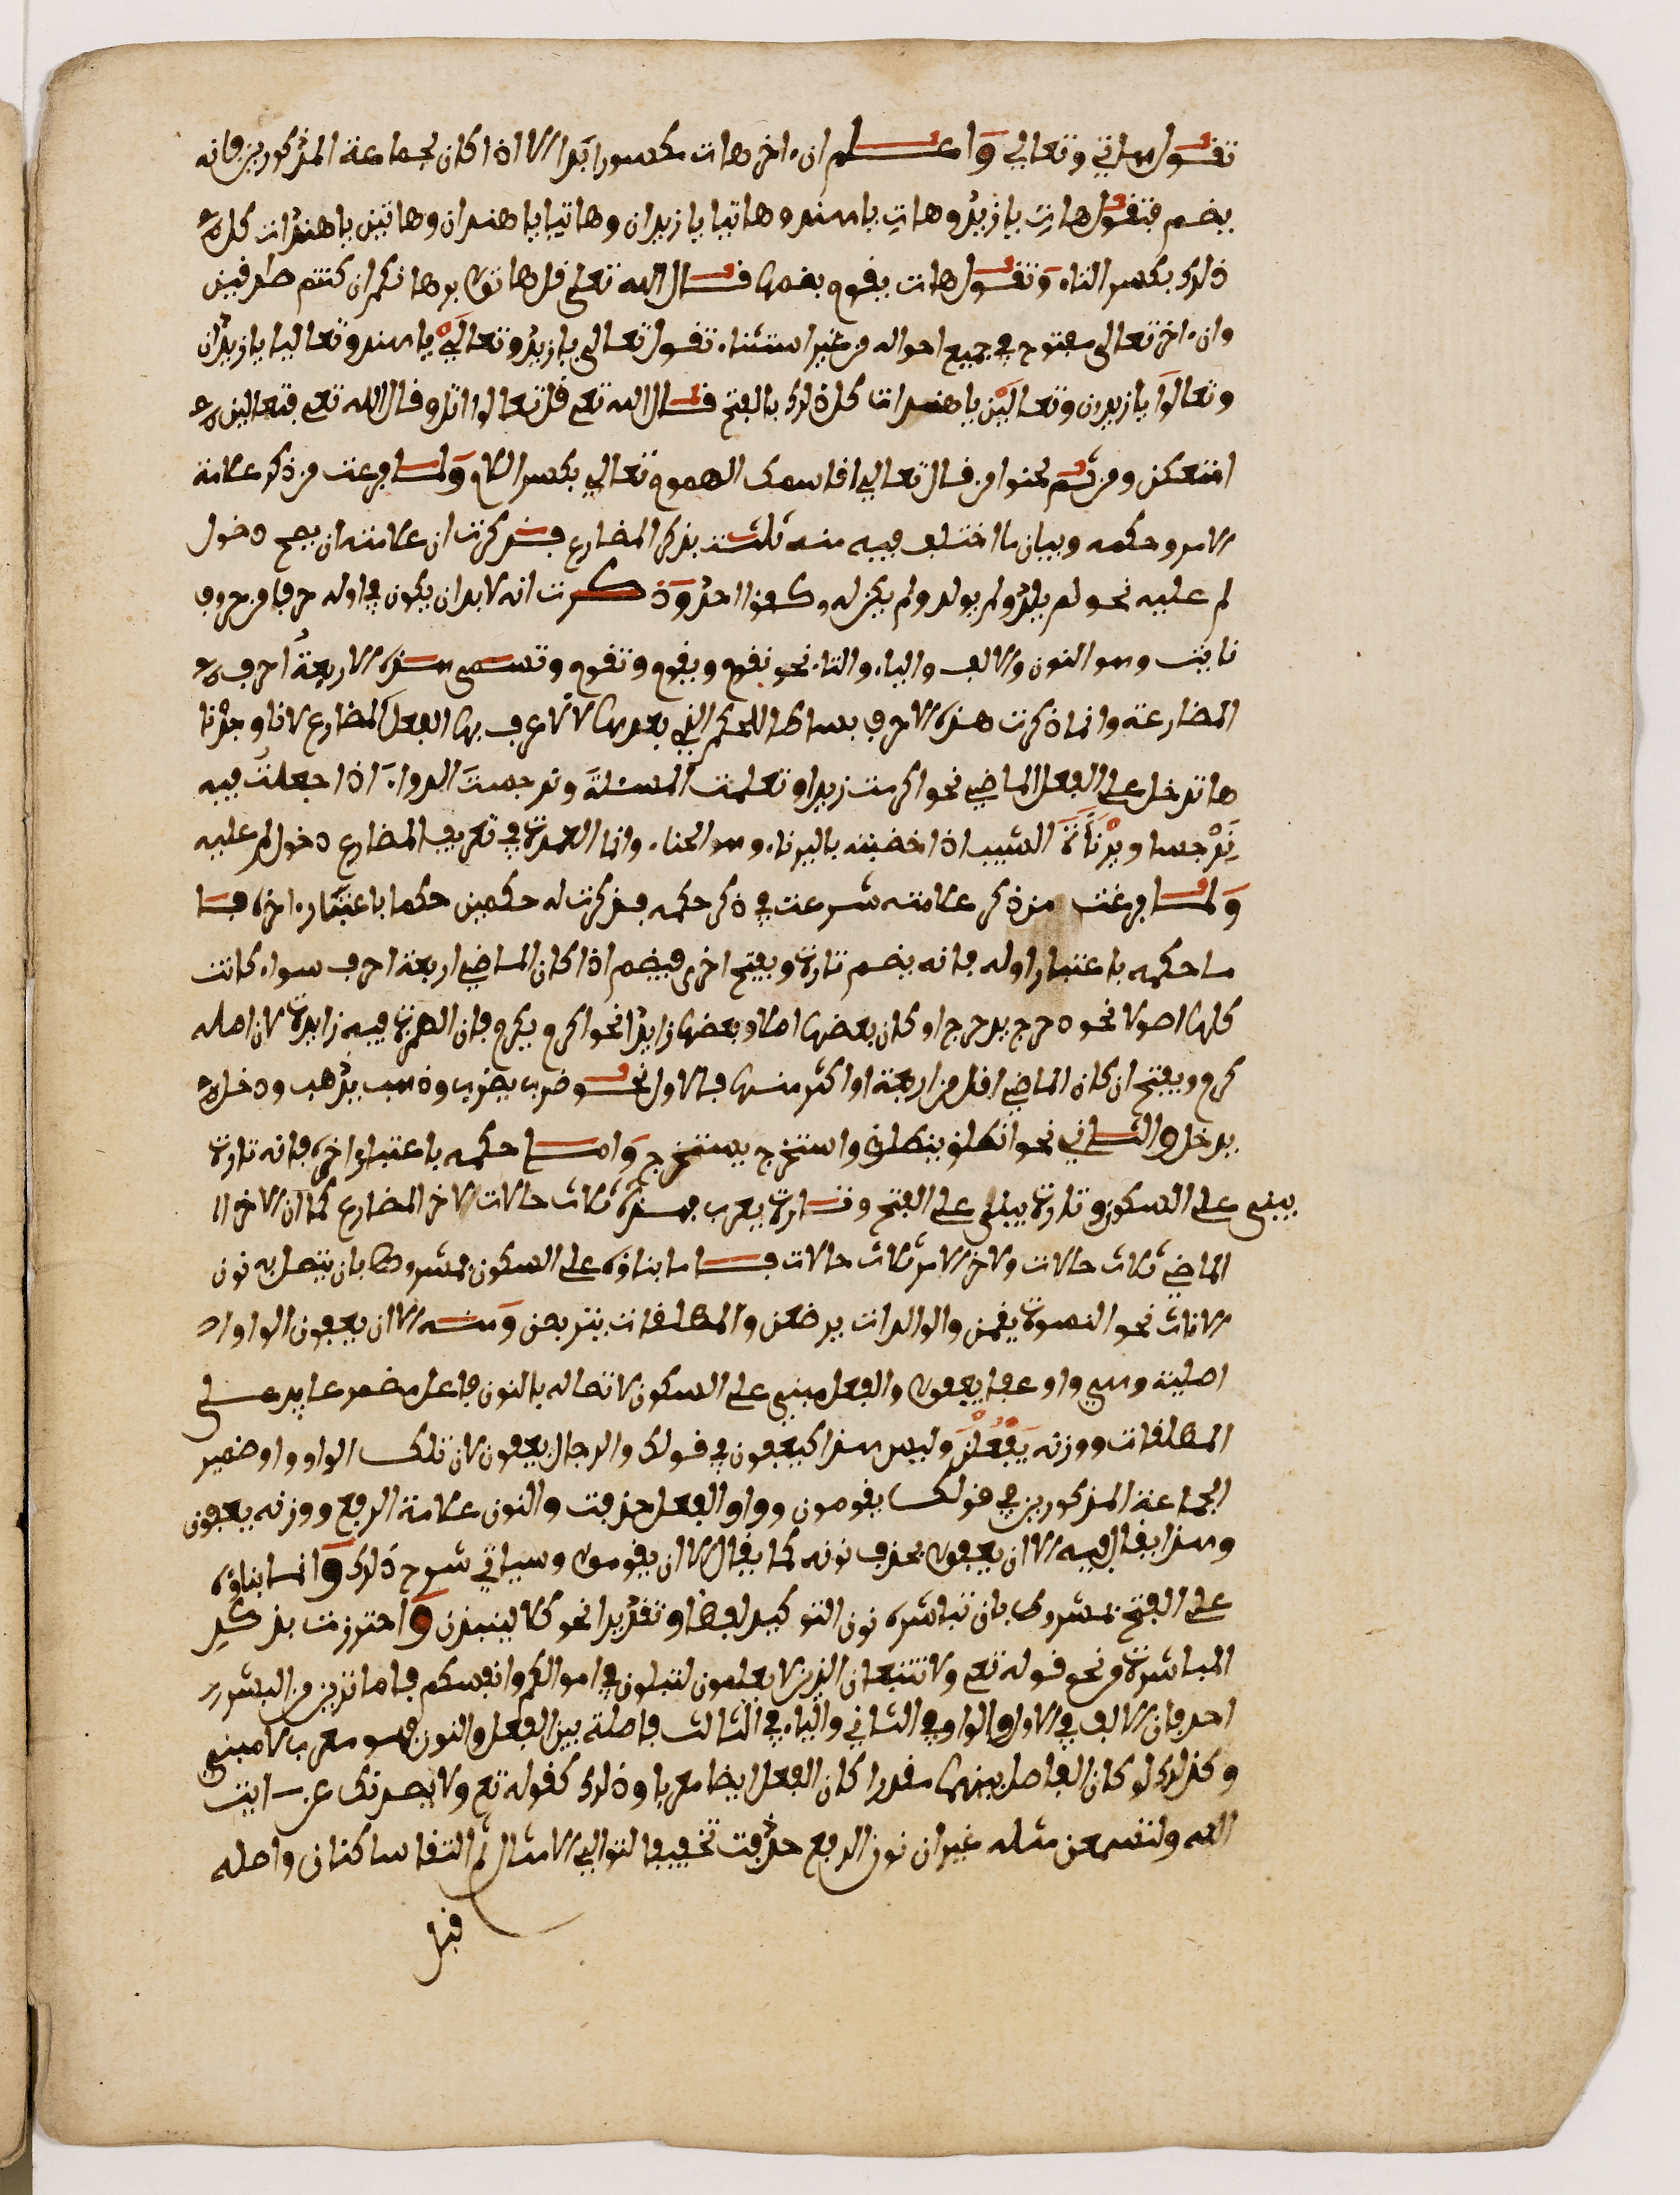 تقول هاتي وتعالي واعلم ان ءاخر هات مكسور ابدا الا اذا كان لجماعة المذكورين فانه
يضم فتقول هات يا زيد وهات يا هند وهاتيا يا زيدان وهاتيا يا هندان وهاتين يا هندات كل
ذلك بكسر التاء وتقول هات يقوم بضمها قال الله تعلى قل هاتوا برهانكم ان كنتم صادقين
وان ءاخر تعالى مفتوح في جميع احواله من غير استثناء تقول تعالى يا زيد وتعالي يا هند وتعاليا يا زيدان
وتعالوا يا زيدون وتعالين يا هندات كل ذلك بالفتح قال الله تع قل تعالوا اتل وقال الله تع فتعالين
امتعكن ومن ثم لحنوا من قال تعالي اقاسمك الهموم تعالي بكسر اللام ولما فرغت من ذكر علامة
الامر وحكمه وبيان ما اختلف فيه منه ثلثت بذكر المضارع فذكرت ان علامته ان يصح دخول
لم عليه نحو لم يلد ولم يولد ولم يكن له كفوا احد وذكرت انه لا بد ان يكون في اوله حرف من حروف
نايت وهو النون والالف والياء والتاء نحو نقوم ويقوم وتقوم وتسمى هذه الاربعة احرف
المضارعة وانما ذكرت هذه الاحرف بساطا للحكم الذي بعدها لا لاعرف بها الفعل المضارع لانا وجدنا
ها تدخل على الفعل الماضي نحو اكرمت زيدا وتعلمت المسئلة ونرجست الدواء اذا جعلت فيه
نرجسا ويرنات الشيب اذا خضبته باليرناء وهو الحناء وانما العمدة في تعريف المضارع دخول لم عليه
ولما فرغت من ذكر علامته شرعت في ذكر حكمه فذكرت له حكمين حكما باعتبار ءاخره فا
ما حكمه باعتبار اوله فانه يضم تارة ويفتح اخرى فيضم اذا كان الماضي اربعة احرف سواء كانت
كلها اصولا نحو دحرج يدحرج او كان بعضها اصلا وبعضها زايدا نحو اكرم يكرم فان الهمزة فيه زايدة لان اصله
كرم ويفتح ان كان الماضي اقل من اربعة او اكثر منها فالاول نحو ضرب يضرب وذهب يذهب ودخل
يدخل والثاني نحو انطلق ينطلق واستخرج يستخرج واما حكمه باعتبار اخره فانه تارة
يبنى على السكون وتارة يبنى على الفتح وتارة يعرب فهذه ثلاث حالات لاخر المضارع كما ان لاخر ا
الماضي ثلاث حالات ولاخر الامر ثلاث حالات فاما بناؤه على السكون فمشروط بان يتصل به نون
الاناث نحو النسوة يقمن والوالدات يرضعن والمطلقات يتربصن ومنه الا ان يعفون الواو
اصلية وهي واو عفا يعفوا والفعل مبني على السكون لاتصاله بالنون فاعل مضمر عايد على
المطلقات ووزنه يفعلن وليس هذا كيعفون في قولك والرجال يعفون لان تلك الواو واو ضمير
الجماعة المذكورين في قولك يقومون وواو الفعل حذفت والنون علامة الرفع ووزنه يعفون
وهذا يقال فيه الا ان يعفوا بحذف نونه كما يقال الا ان يقوموا وسياتي شرح ذلك واما بناؤه
على الفتح فمشروط بان تباشره نون التوكيد لفظا وتقديرا نحو كلا لينبذن واحترزت بذكر
المباشرة من نحو قوله تع ولا تتبعان الذين لا يعلمون لتبلون في اموالكم وانفسكم فاما ترين من البشر
احد فان الالف في الاول والواو في الثاني والياء في الثالث فاصلة بين الفعل والنون فهو معرب لا مبني
وكذلك لو كان الفاصل بينهما مقدرا كان الفعل ايضا معربا وذلك كقوله تع ولا يصدنك عن ايت
الله ولتسمعن مثله غير ان نون الرفع حذفت تخفيفا لتوالي الامثال ثم التقا ساكنان واصله
قبل